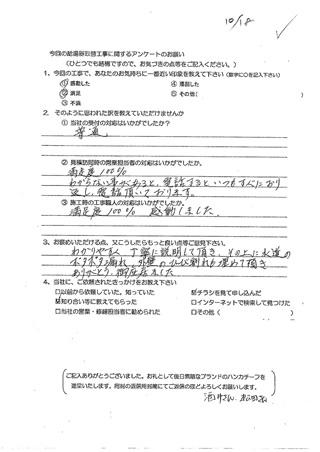 10/18
今回の給湯器取替工事に関するアンケートのお願い
(ひとつでも結構ですので、お気づきの点等をご記入ください。)
1、今回の工事で、あなたのお気持ちに一番近い印象を教えて下さい(数字に○を記入下さい)
①感動した ④満足した
②満足 ⑤その他( )
③不満
2、そのように思われた訳を教えていただけませんか
① 当社の受付の対応はいかがでしたか?
普通
② 見積訪問時の営業担当者の対応はいかがでしたか。
満足度100%
わからない事があると、電話するといつもすぐにおり
返し電話頂いております。
③ 施工時の工事職人の対応はいかがでしたか?
満足度100% 感動しました
3、お褒めいただける点、又こうしたらもっと良い点等ご意見下さい。
わかりやすく丁寧に説明して頂き、その上に水道の
ポタポタ漏れ、外壁のひび割れも埋めて頂き
ありがとう御座いました
4、当社に、ご依頼されたきっかけをお教え下さい
□以前から依頼していた。知っていた ☑チラシを見て申し込んだ
☑知り合い等に教えてもらった □インターネットで検索して見つけた
□当社の営業・修繕担当者に勧められた □その他( )
ご記入ありがとうございました。お礼として後日素敵なブランドのハンカチーフを
進呈いたします。同封の返信用封筒にてご返信の程どうよろしくお願いします。
酒井さん、松田さん